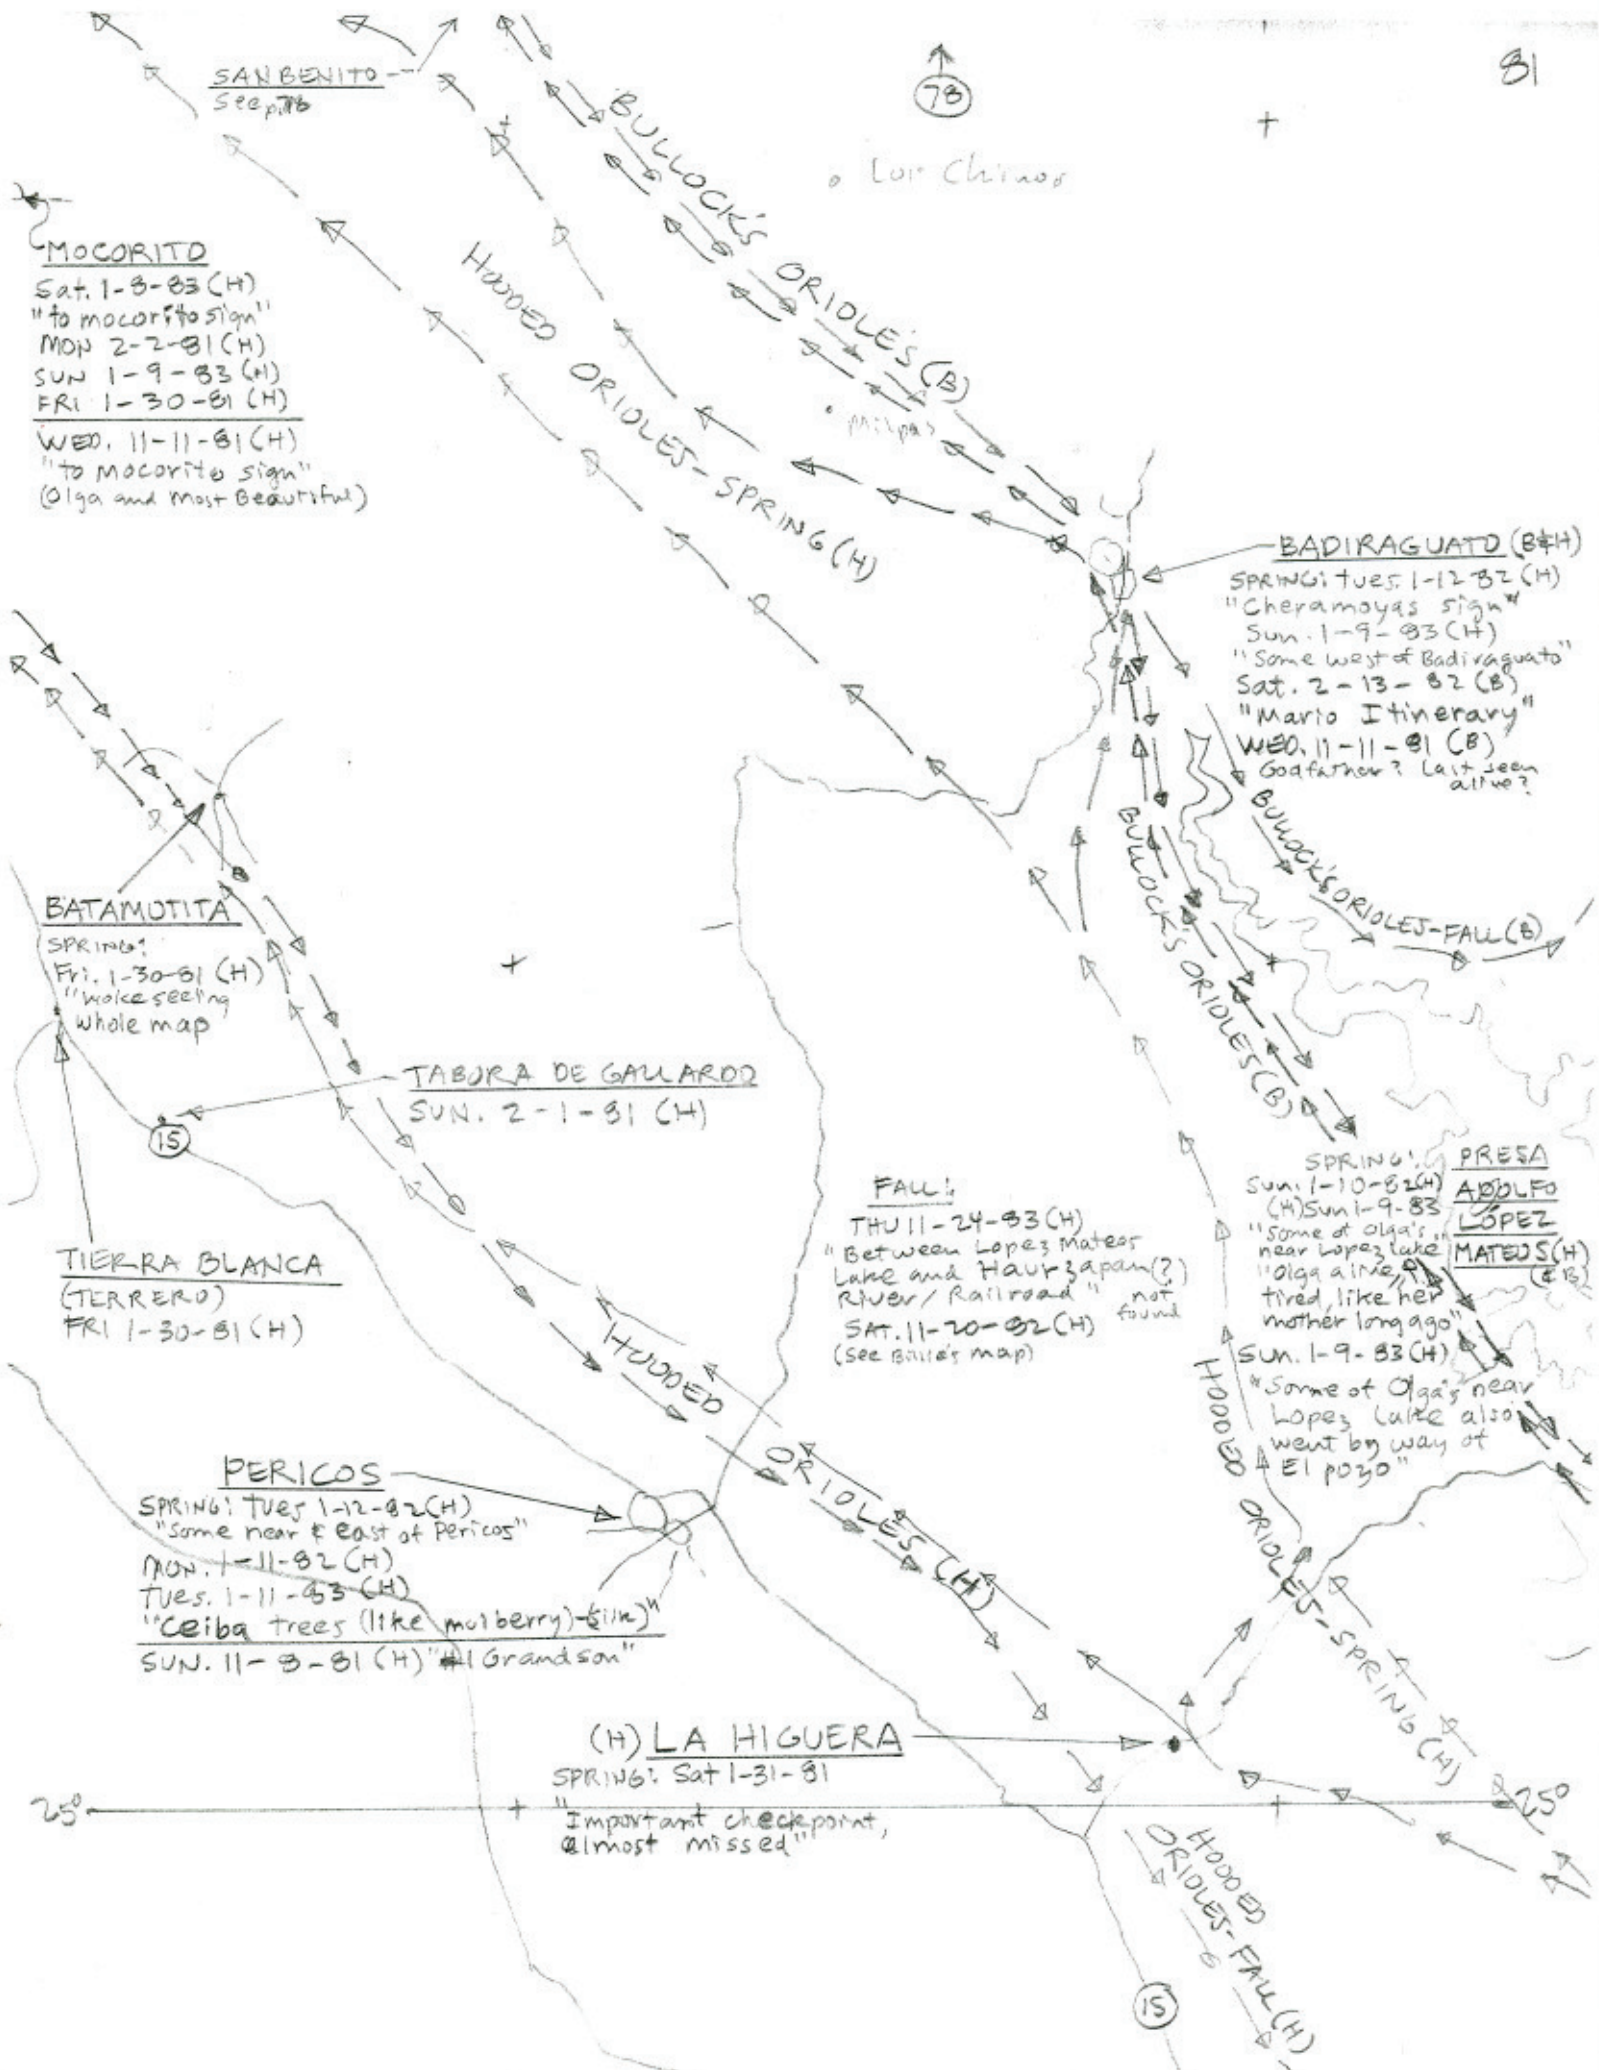 81
SAN BENITO
See p. 78
78
Los Chinos
BULLOCK'S ORIOLES (B)
HOODED ORIOLES - SPRING (H)
MOCORITO
Sat. 1-8-83 (H)
"to mocorito sign"
MON 2-2-81 (H)
SUN 1-9-83 (H)
FRI 1-30-81 (H)
WED. 11-11-81 (H)
"to mocorito sign"
(Olga and Most Beautiful)
milpas
BADIRAGUATO (B&H)
SPRING: tues. 1-12-82 (H)
"Cheramoyas sign"
Sun. 1-9-83 (H)
"Some west of Badiraguato"
Sat. 2-13-82 (B)
"Mario Itinerary"
WED. 11-11-81 (B)
Godfather? Last seen
alive?
BULLOCK'S ORIOLES-FALL (B)
BULLOCK'S ORIOLES (B)
BATAMOTITA
SPRING:
Fri. 1-30-81 (H)
"woke seeing
whole map"
TABURA DE GALLARDO
SUN. 2-1-81 (H)
15
TIERRA BLANCA
(TERRERO)
FRI 1-30-81 (H)
FALL:
THU 11-24-83 (H)
"Between Lopez Mateos
Lake and (?)
River/Railroad" not
found
SAT. 11-20-82 (H)
(See map)
SPRING:
Sun. 1-10-82 (H)
(H) Sun 1-9-83
"Some of Olga's
near Lopez Lake"
"Olga alive,
tired, like her
mother long ago"
Sun. 1-9-83 (H)
"Some of Olga's near
Lopez Lake also
went by way of
El pozo"
PRESA
ADOLFO
LÓPEZ
MATEOS (H)
(& B)
HOODED ORIOLES (H)
HOODED ORIOLES-SPRING (H)
PERICOS
SPRING: Tues 1-12-82 (H)
"Some near & east of Pericos"
MON. 1-11-82 (H)
Tues. 1-11-83 (H)
"Ceiba trees (like mulberry)-silk)"
SUN. 11-8-81 (H) "#1 Grandson"
(H) LA HIGUERA
SPRING: Sat 1-31-81
"Important checkpoint,
almost missed"
25°
25°
HOODED
ORIOLES-FALL (H)
15